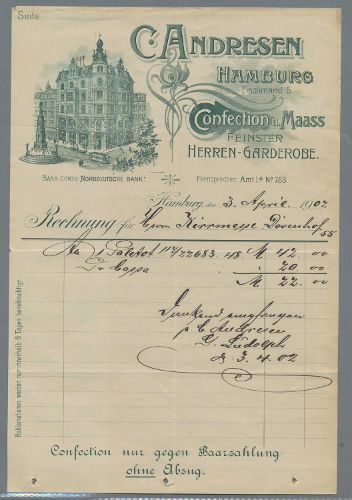 Seite
C. ANDRESEN
HAMBURG
Fischmarkt 5.
Confection u. Maass
FEINSTER
HERREN-GARDEROBE.
BANK CONTO: "NORDDEUTSCHE BANK"
Fernsprecher: Amt I a No 753
Hamburg, den 3 April 1902
Rechnung für Herrn Kirrmasse Dovenhof
55
An 1 Paletot 114/22683 48 M 42.00
Dr Cassa " 20.00
M 22.00
Dankend empfangen
p C Andresen
G. Ludolph
d 3.4.02
Reklamationen werden nur innerhalb 8 Tagen berücksichtigt.
Confection nur gegen Baarzahlung
ohne Abzug.